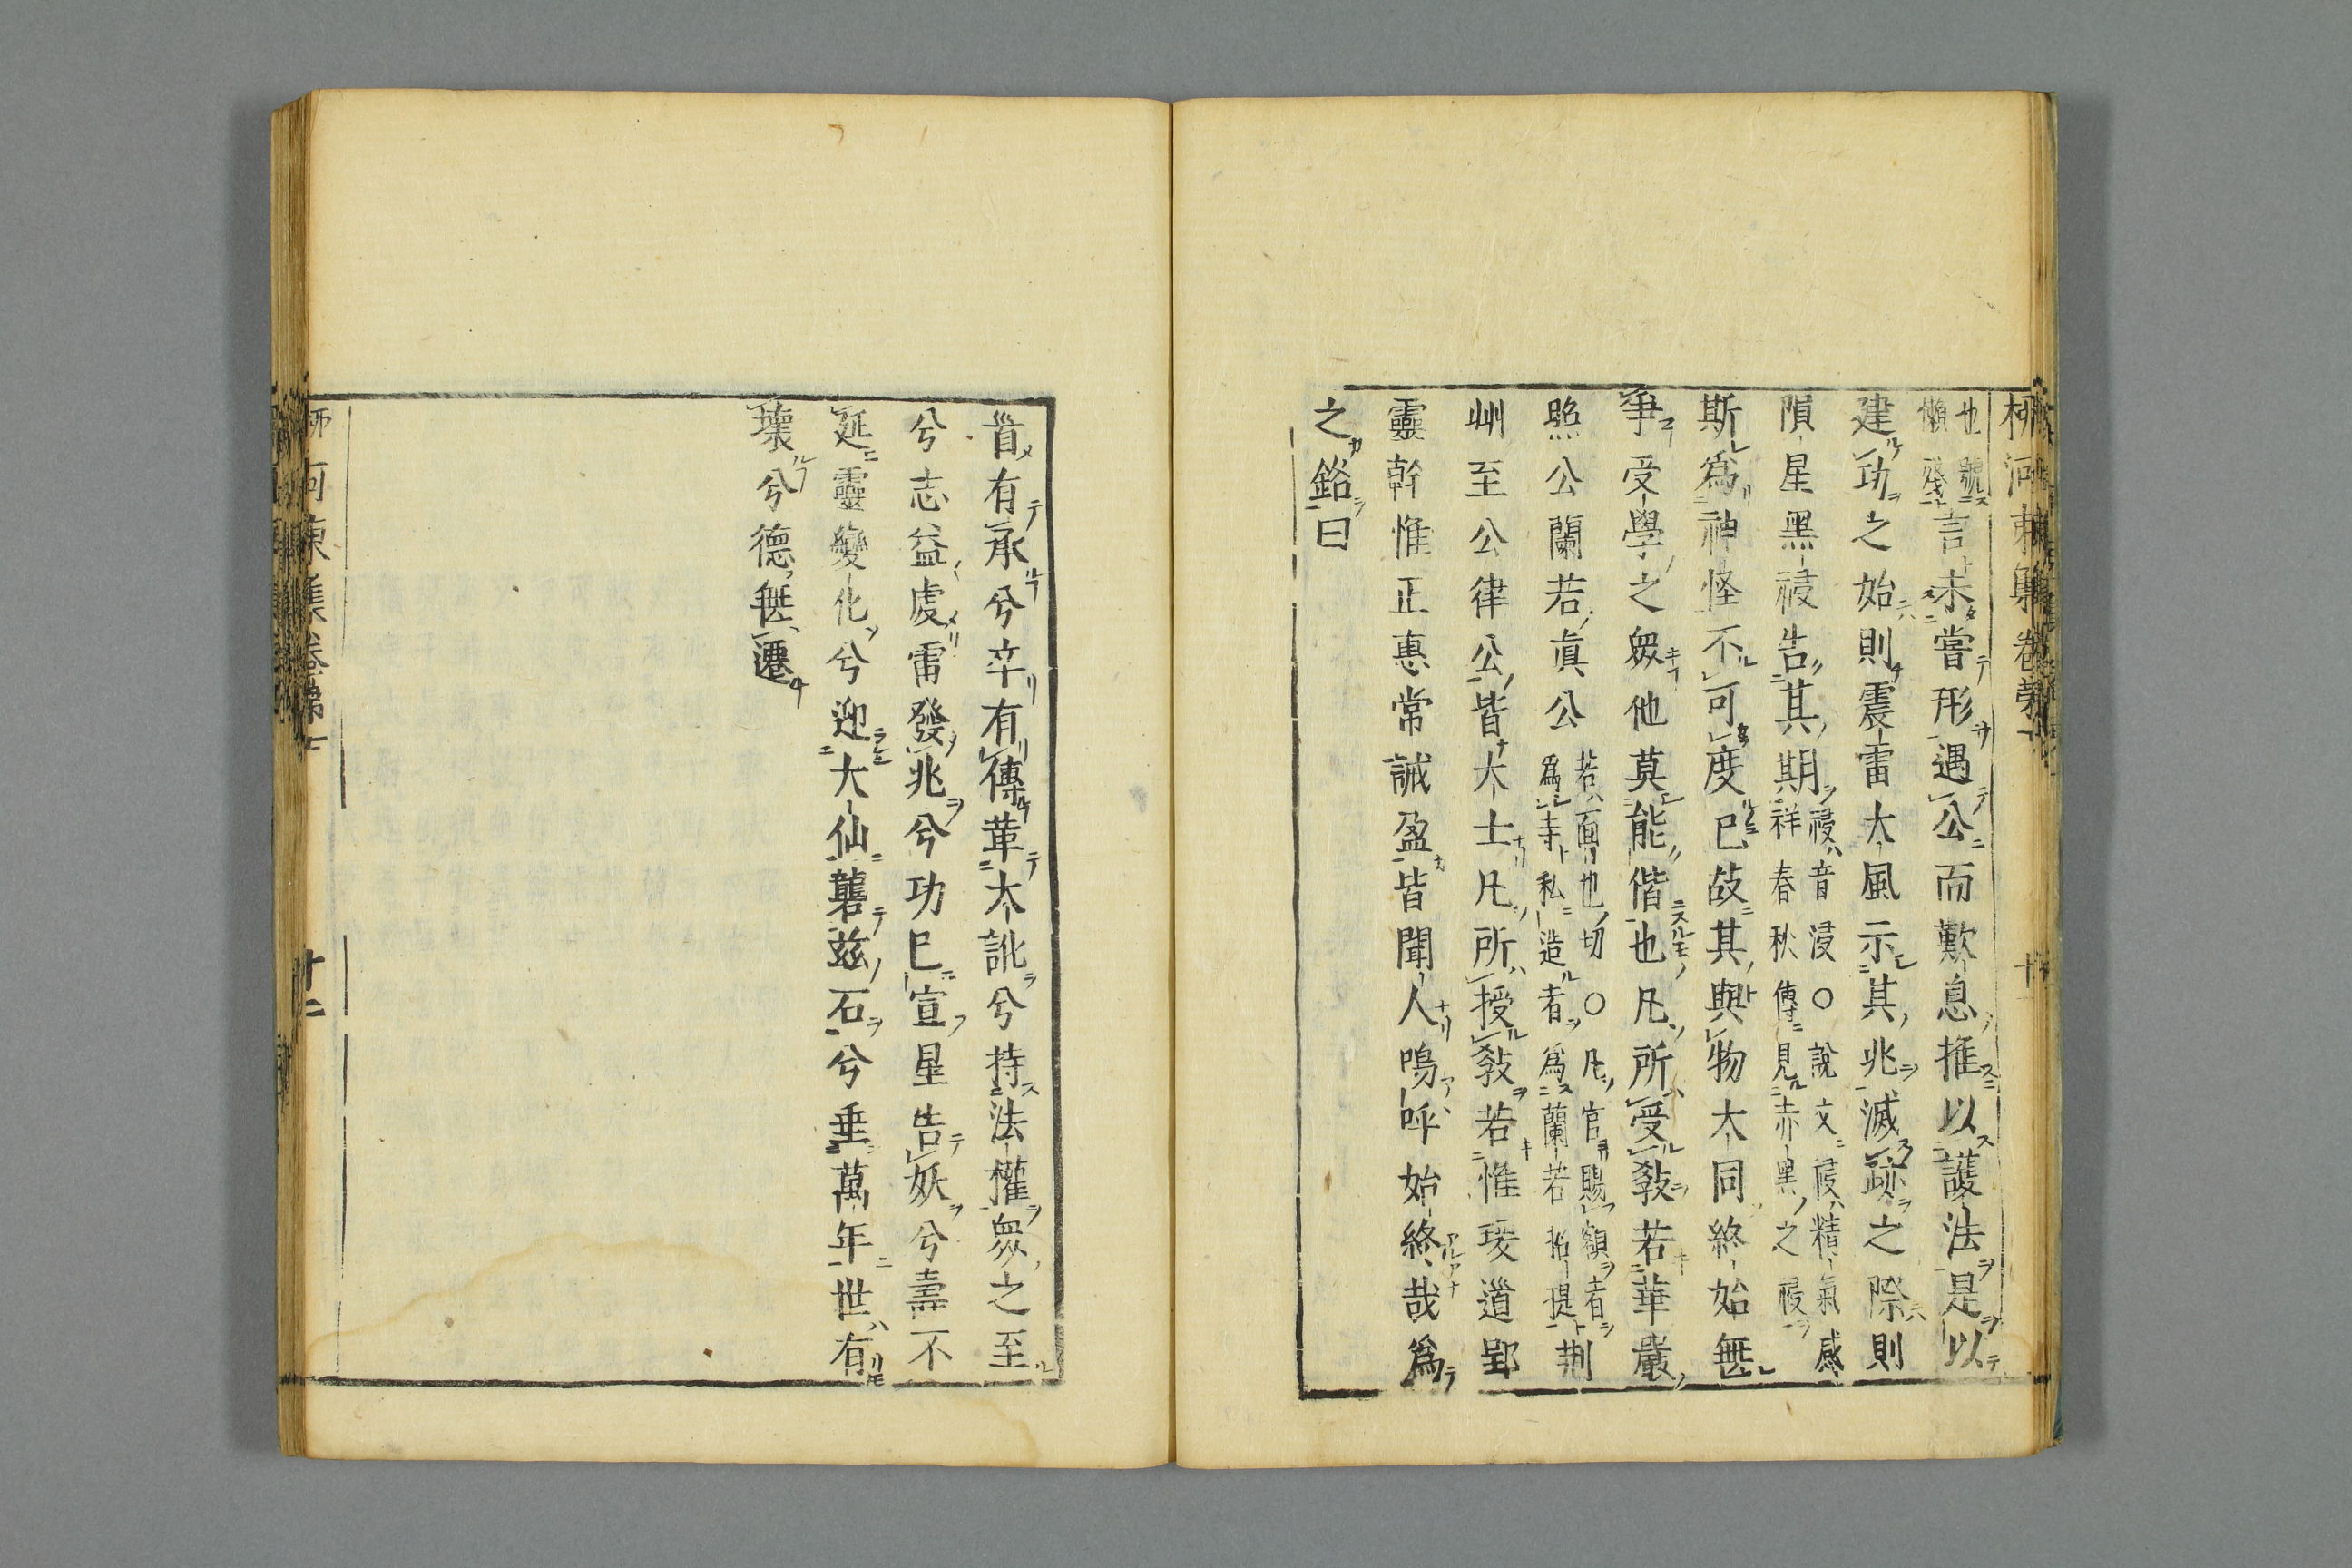 柳河東集卷第七
也號
懶殘言未嘗形遇公而歎息推以護法是以
建功之始則震雷大風示其兆滅跡之際則
隕星黑祲告其期祲音浸○說文祲精氣感
祥春秋傳見赤黑之祲
斯爲神怪不可度已故其興物大同終始無
爭受學之衆他莫能偕也凡所受教若華嚴
照公蘭若眞公若面也切○凡官賜額者
爲寺私造者爲蘭若招提荆
州至公律公皆大士凡所授教若惟瑗道郢
靈幹惟正惠常誠盈皆聞人嗚呼始終哉爲
之銘曰
首有承兮卒有傳革大訛兮持法權衆之至
兮志益虔雷發兆兮功已宣星告妖兮壽不
延靈變化兮迎大仙礱茲石兮垂萬年世有
壞兮德無遷
柳河東集卷第七
十二